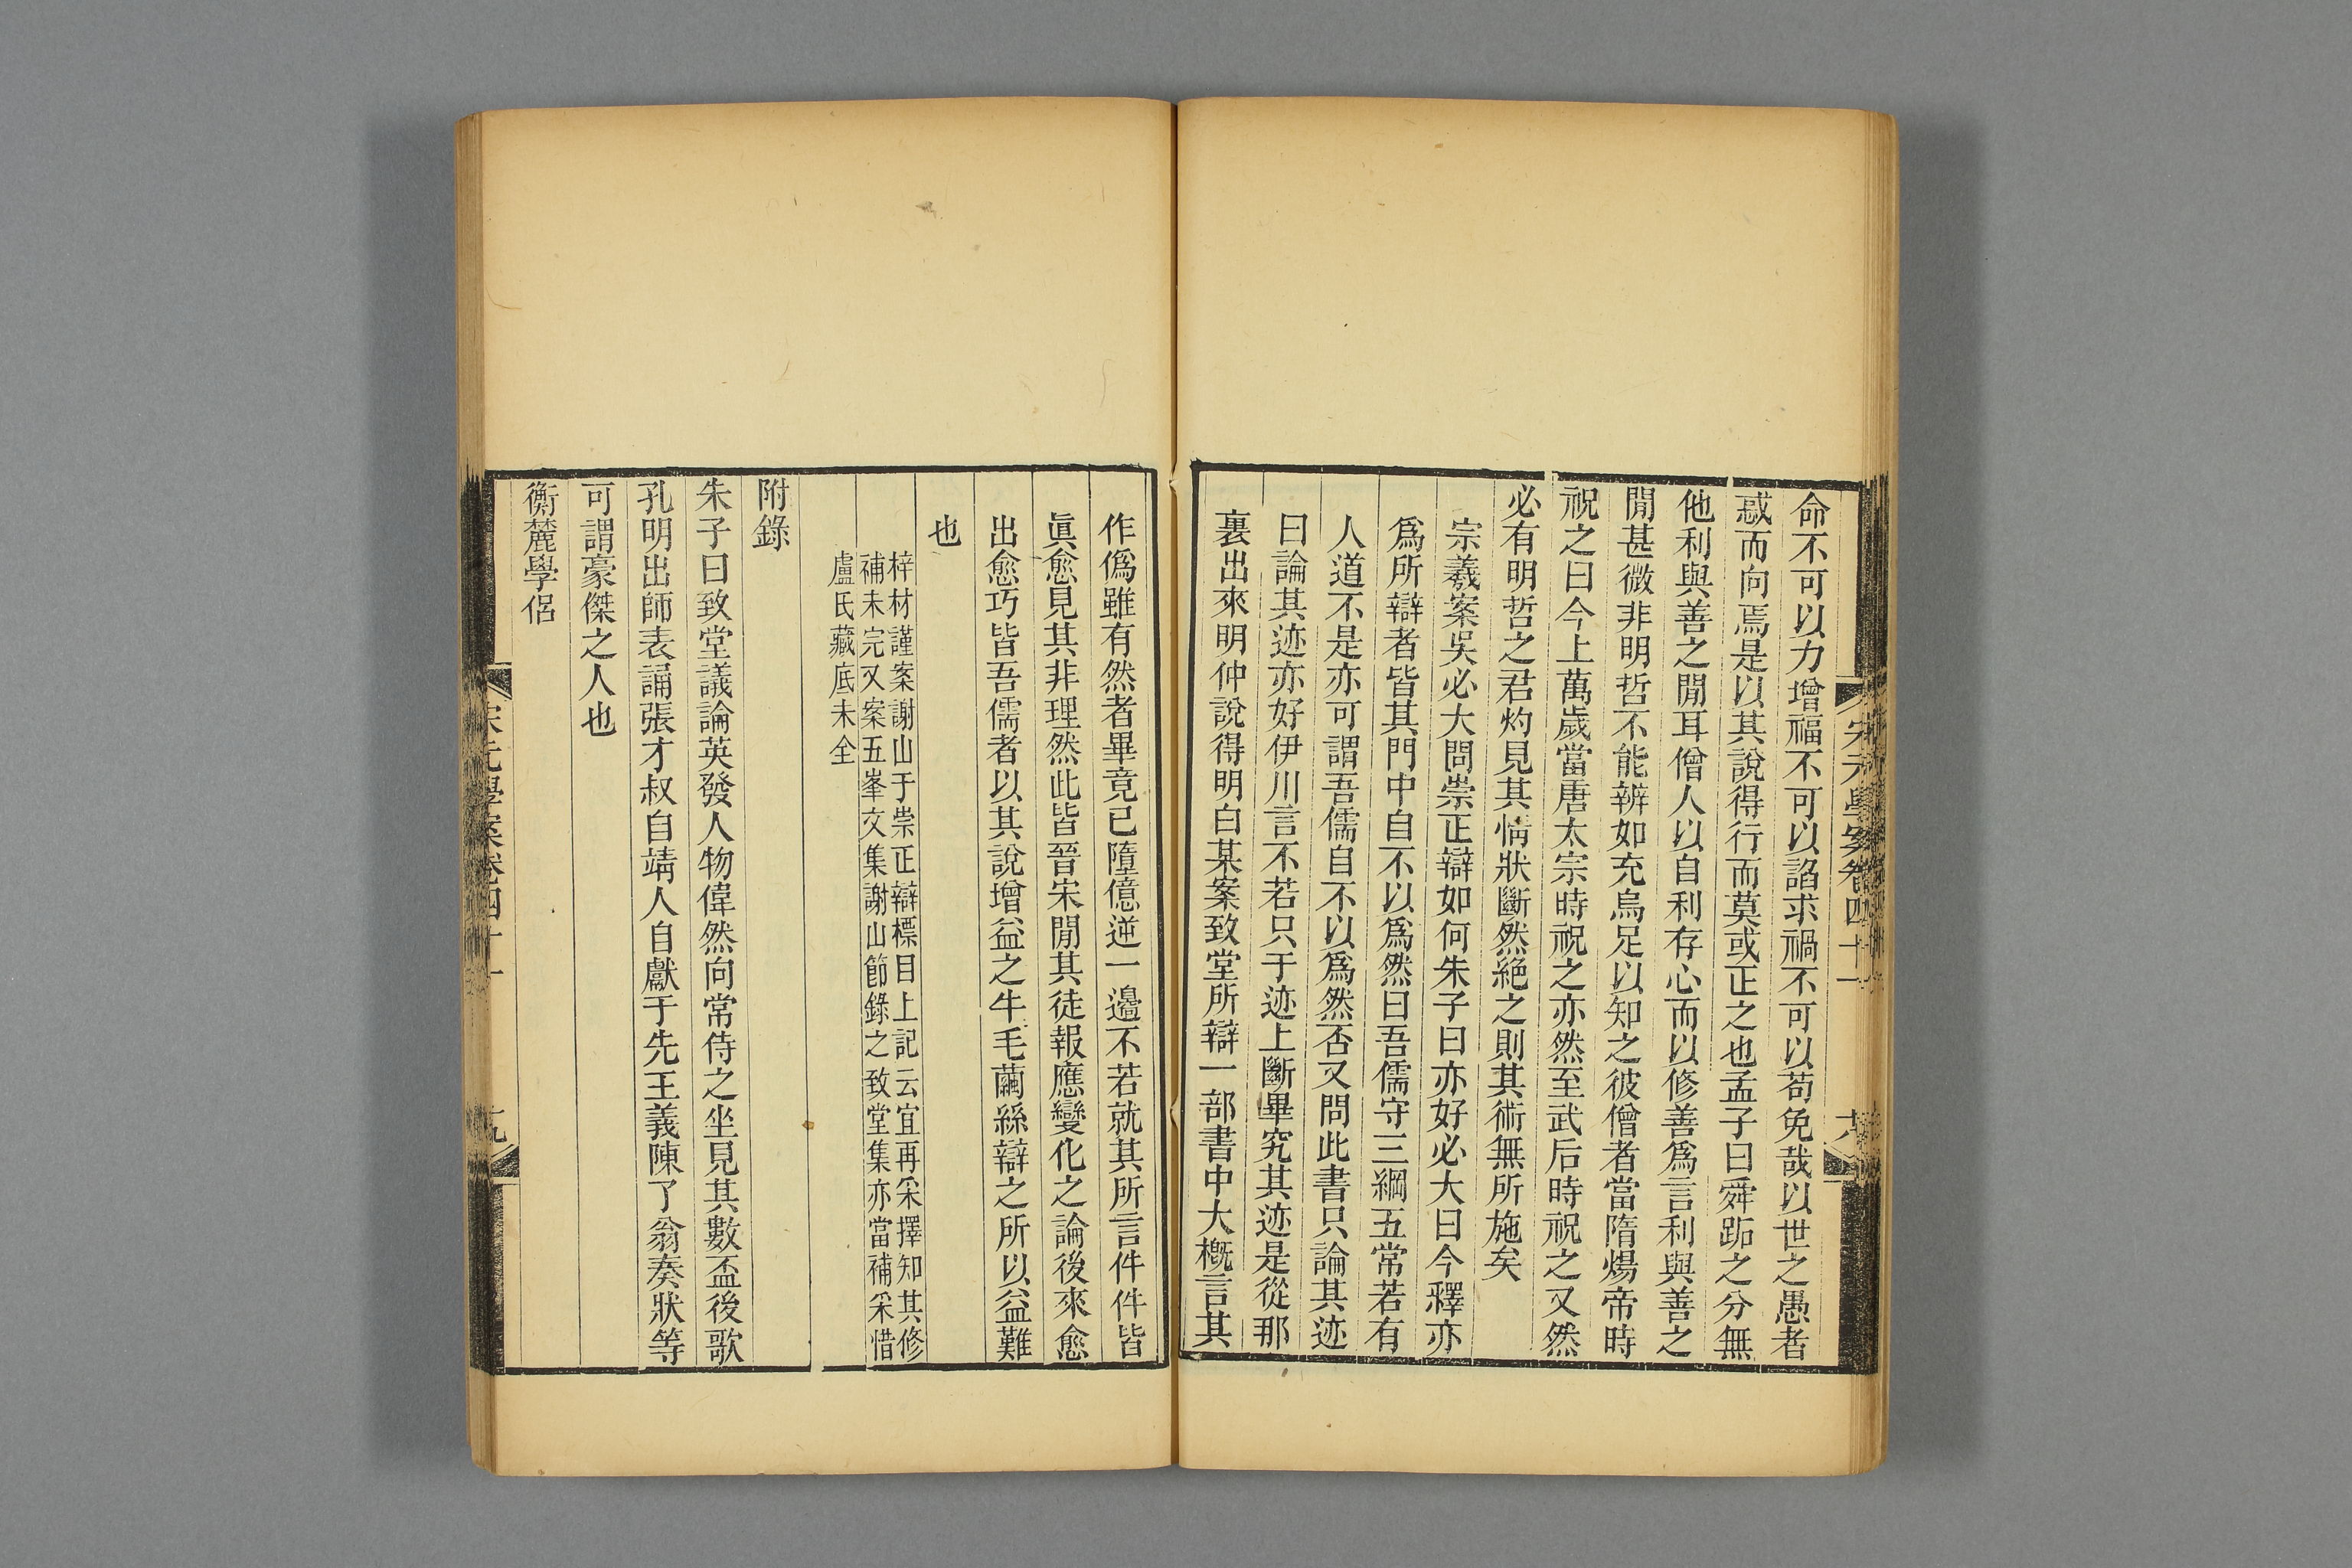 命不可以力增福不可以諂求禍不可以苟免哉以世之愚者
惑而向焉是以其說得行而莫或正之也孟子曰舜跖之分無
他利與善之閒耳僧人以自利存心而以修善爲言利與善之
閒甚微非明哲不能辨如充烏足以知之彼僧者當隋煬帝時
祝之曰今上萬歲當唐太宗時祝之亦然至武后時祝之又然
必有明哲之君灼見其情狀斷然絕之則其術無所施矣
宗羲案吳必大問崇正辯如何朱子曰亦好必大曰今釋亦
爲所辯者皆其門中自不以爲然曰吾儒守三綱五常若有
人道不是亦可謂吾儒自不以爲然否又問此書只論其迹
曰論其迹亦好伊川言不若只于迹上斷畢究其迹是從那
裏出來明仲說得明白某案致堂所辯一部書中大槪言其
宋元學案卷四十一
作僞雖有然者畢竟已墮億逆一邊不若就其所言件件皆
眞愈見其非理然此皆晉宋閒其徒報應變化之論後來愈
出愈巧皆吾儒者以其說增益之牛毛繭絲辯之所以益難
也
梓材謹案謝山于崇正辯標目上記云宜再采擇知其修
補未完又案五峯文集謝山節錄之致堂集亦當補采惜
盧氏藏底未全
附錄
朱子曰致堂議論英發人物偉然向常侍之坐見其數盃後歌
孔明出師表誦張才叔自靖人自獻于先王義陳了翁奏狀等
可謂豪傑之人也
衡麓學侶
宋元學案卷四十一